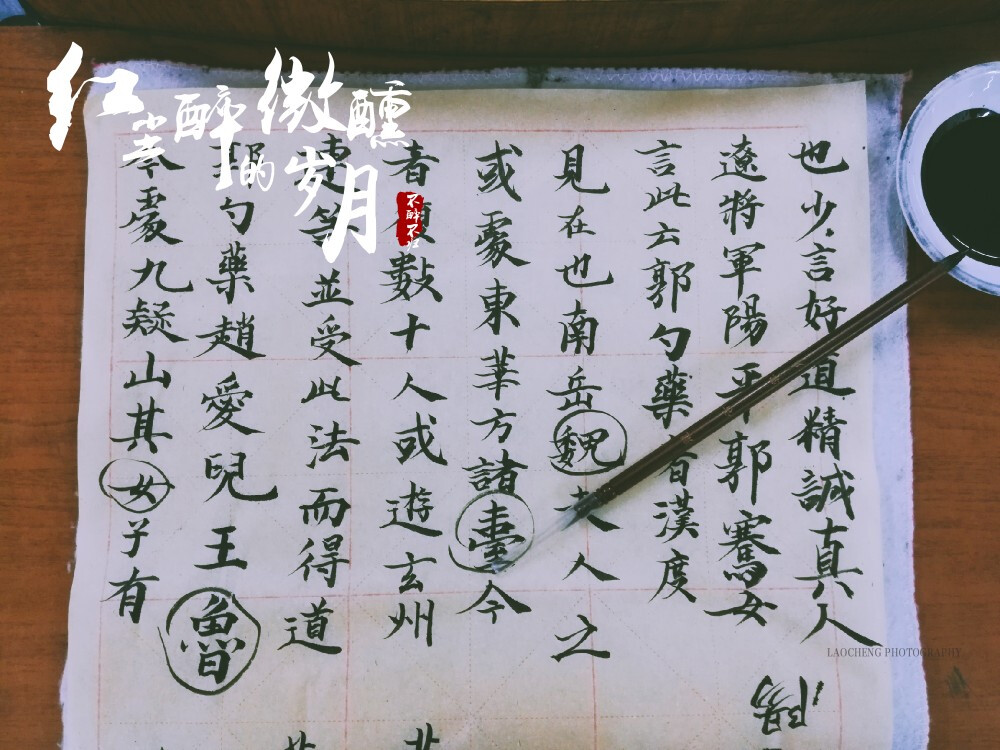 红尘醉微醺
的岁月
不醉不归
也少言好道精誠真人
遼將軍陽平郭騫女
言此云郭勺藥者漢度
見在也南岳魏夫人之
或處東華方諸臺今
者數十人或遊玄州
連等並受此法而得道
郭勺藥趙愛兒王魯
今處九疑山其女子有
LAOCHENG PHOTOGRAPHY